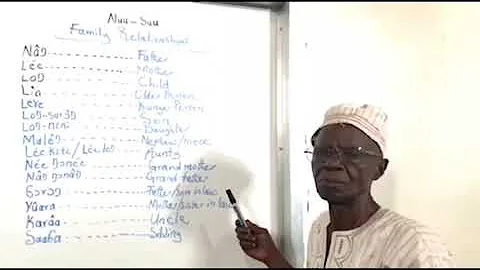 Nuu - Suu
Family Relationships
Nâɔ --- Father
Lée --- Mother
Loɔ --- Child
Lia --- Older Person
Leve --- Person
Loɔ-surâɔ --- Son
Loɔ-neni --- Daughter
Maléɔ --- Nephew/niece
Lée kete/Lée loɔ --- Aunty
Née ɔonée --- Grand mother
Nâɔ ɔonâɔ --- Grand father
--- Father/son in law
Yâara --- Mother/sister in law
Karâa --- Uncle
Saaba --- Sibling